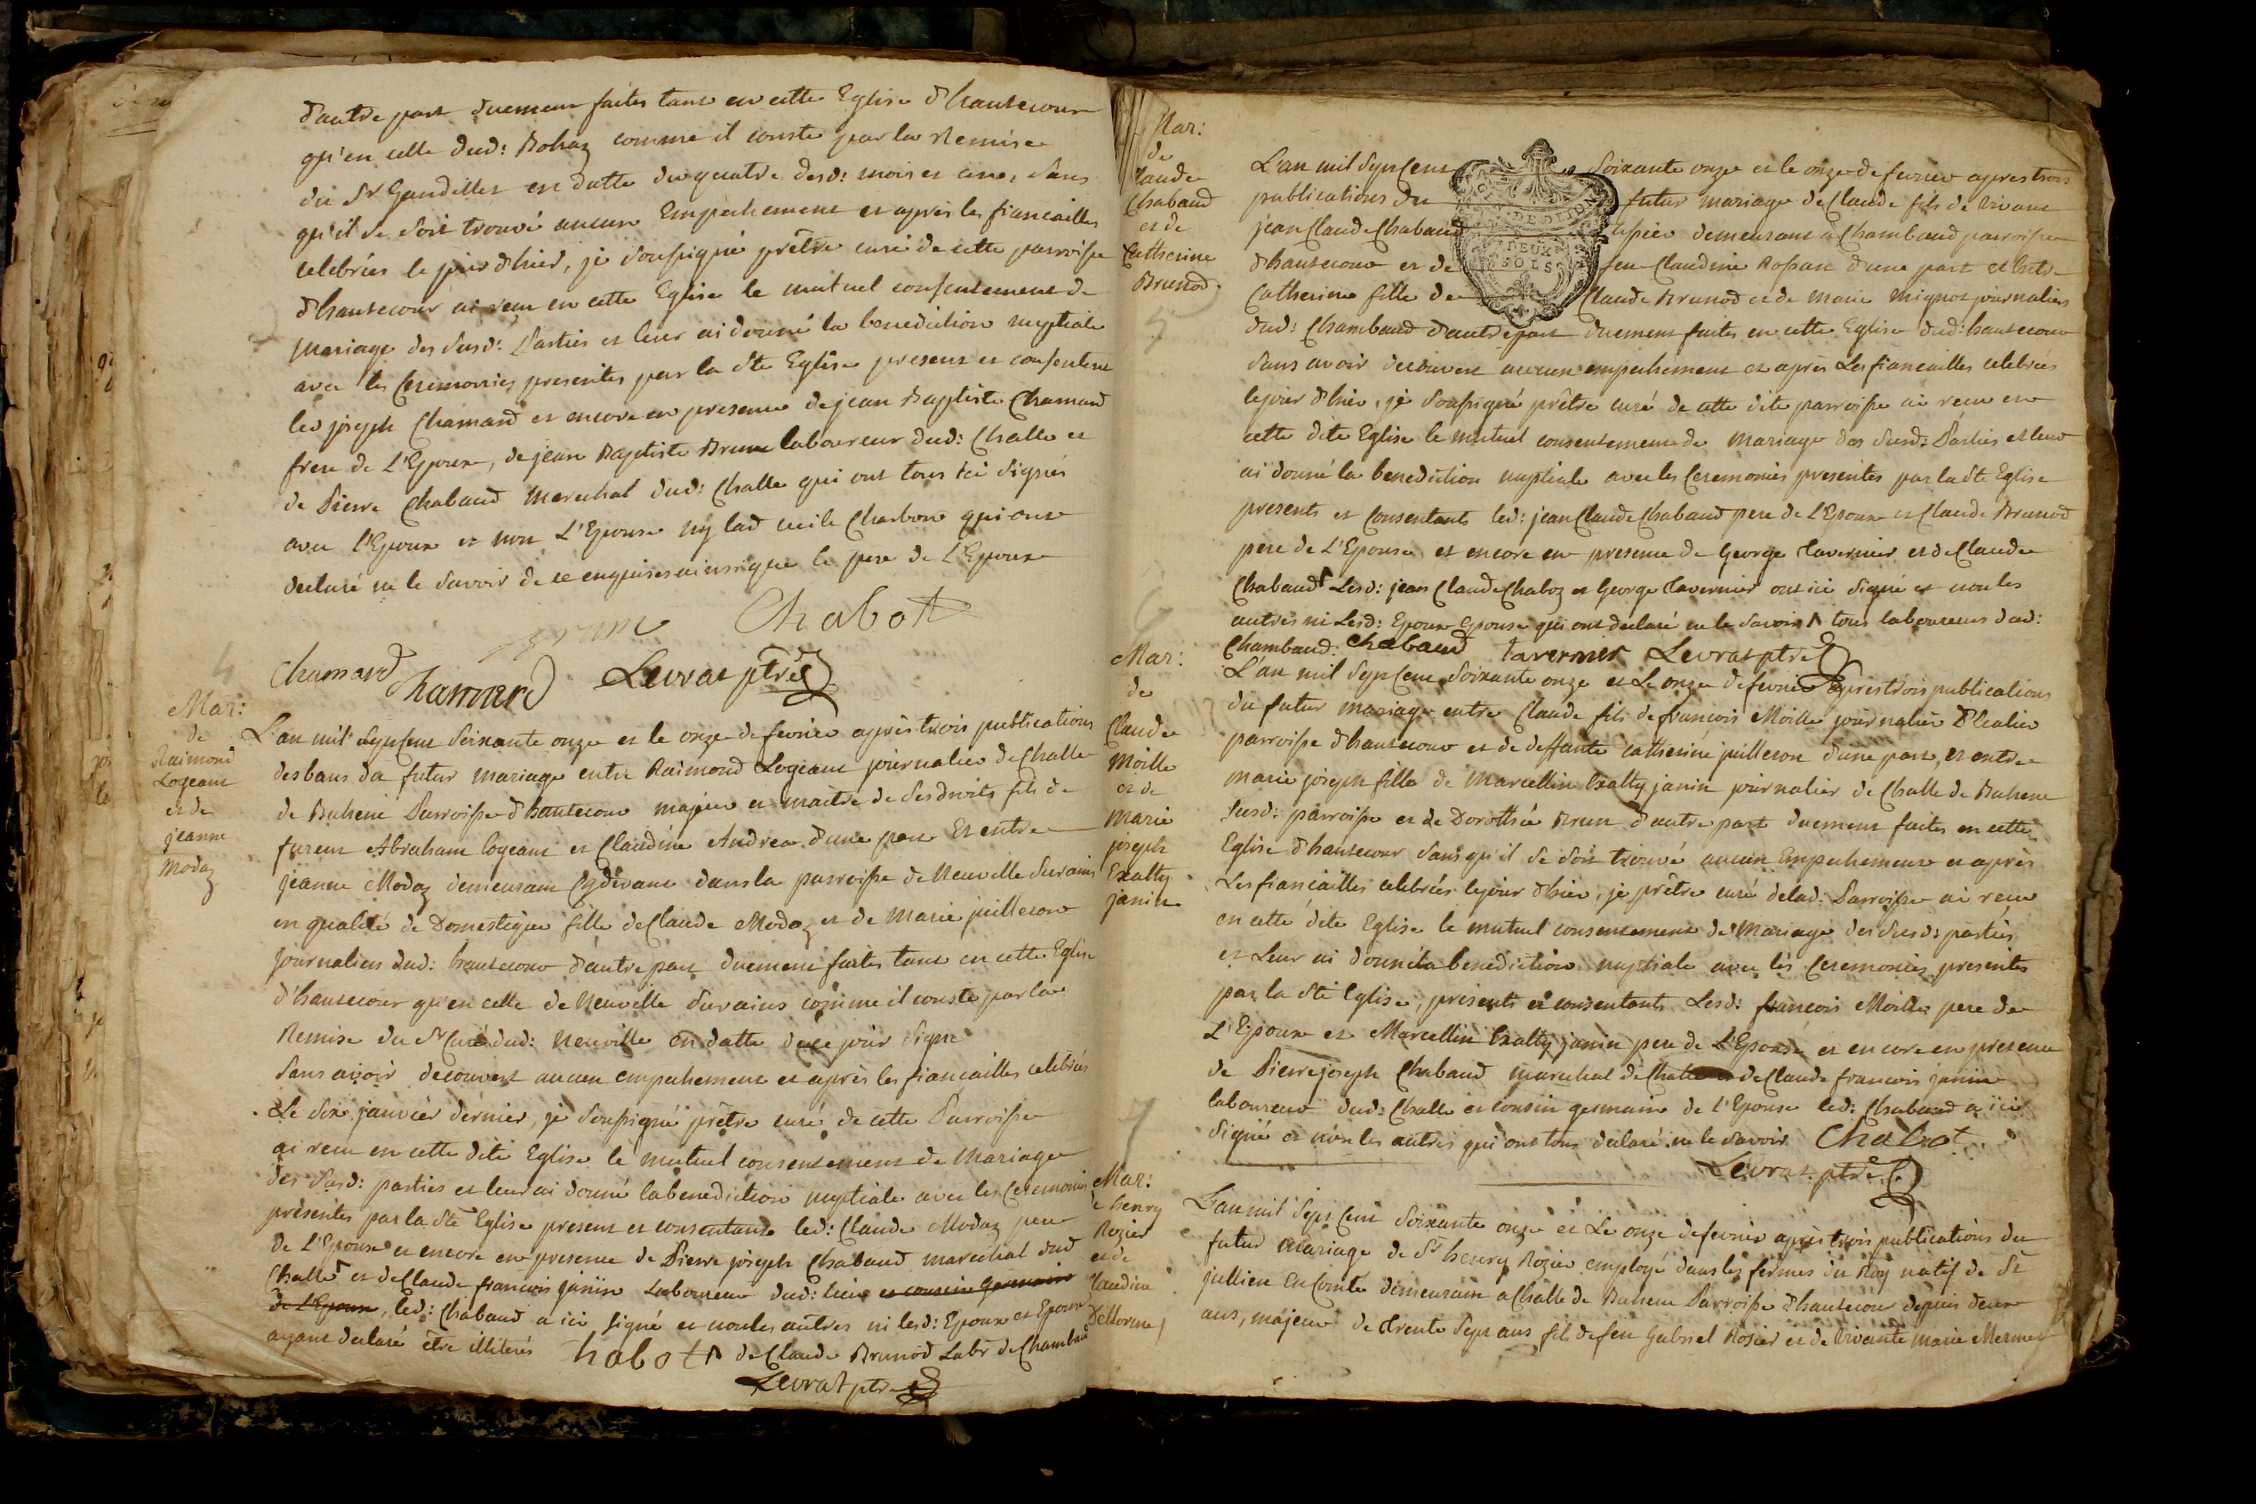 d'autre part duement faites tant en cette Eglise d'hautecour
qu'en celle dud: Bohaz comme il conste par la Remise
du Sr Gandillet en datte du quatre desd: mois et an, sans
qu'il se soit trouvé aucun Empechement et après les fiancailles
celebrées le jour d'hier, je soussigné prêtre curé de cette parroisse
d'hautecour ai recu en cette Eglise le mutuel consentement de
mariage des susd: Parties et leur ai donné la benediction nuptiale
avec les Ceremonies prescrites par la Ste Eglise present et consentent
led joseph Chamard et encore en presence de jean Baptiste Chamard
frere de L'Epoux, de jean Baptiste Brun laboureur dud: Challe et
de Pierre Chabaud Marechal dud: Challe qui ont tous ici signés
avec l'Epoux et non L'Epouse ny lad Cecile Charbon qui ont
declaré ne le savoir de ce enquises ainsi que le pere de L'Epoux
Brun Chabot
Chamard Chamard Levrat ptre
4
Mar:
de
Raimond
Logeant
et de
jeanne
Modaz
L'an mil sept cent soixante onze et le onze de fevrier après trois publications
des bans du futur mariage entre Raimond Logeant journalier de Challe
de Buhene Parroisse d'hautecour majeur et maitre de ses droits fils de
furent Abraham logeant et Claudine Andrea d'une part Et entre
jeanne Modaz demeurant Cydevant dans la parroisse de Neuville sur ains
en qualité de Domestique fille de Claude Modaz et de Marie juilleron
journaliers dud: hautecour d'autre part duement faites tant en cette Eglise
d'hautecour qu'en celle de Neuville sur ains comme il conste par la
Remise du Sr Curé dud: Neuville en datte de ce jour signé
sans avoir decouvert aucun empechement et après les fiancailles celebrées
Le six janvier dernier, je soussigné prêtre curé de cette Parroisse
ai recu en cette dite Eglise le mutuel consentement de Mariage
des susd: parties et leur ai donné la benediction nuptiale avec les Ceremonies
prescrites par la Ste Eglise present et consentant led: Claude Modaz pere
de L'Epouse et encore en presence de Pierre joseph Chabaud marechal dud
Challe et de Claude francois janin Laboureur dud: lieu et cousin Germain
de L'Epoux, led: Chabaud a ici signé et non les autres ni lesd: Epoux et Epouse
ayant declaré être illiterés Chabot de Claude Brunod Labr de Chambaud
Levrat ptre
Mar:
de
Claude
Chabaud
et de
Catherine
Brunod
5
L'an mil sept cent soixante onze et le onze de fevrier apres trois
publications du futur mariage de Claude fils de vivant
jean Claude Chabaud demeurant a Chambaud parroisse
d'hautecour et de feu Claudine Rossan d'une part et Entre
Catherine fille de Claude Brunod et de marie mignot journaliers
dud: Chambaud d'autre part duement faites en cette Eglise dud: hautecour
sans avoir decouvert aucun empechement et après Les fiancailles celebrées
le jour d'hier, je soussigné prêtre curé de cette dite parroisse ai recu en
cette dite Eglise le mutuel consentement de Mariage des susd: Parties et leur
ai donné la benediction nuptiale avec les Ceremonies prescrites par la Ste Eglise
presents et Consentants led: jean Claude Chabaud pere de L'Epoux et Claude Brunod
pere de L'Epouse, et encore en presence de George Tavernier et de Claude
Chabaud Lesd: jean Claude Chaboz et George Tavernier ont ici signé et non les
autres ni Lesd: Epoux Epouse qui ont declaré ne le savoir tous laboureurs dud:
Chambaud: Chabaud tavernier Levrat ptre
6
Mar:
de
Claude
Moille
et de
Marie
joseph
Exalty
janin
L'an mil sept cent soixante onze et Le onze de fevrier après trois publications
du futur mariage entre Claude fils de francois Moille journalier
parroisse d'hautecour et de deffunte catherine juilleron d'une part, et entre
marie joseph fille de Marcellin Exalty janin journalier de Challe de Buhene
susd: parroisse et de Dorothée Brun d'autre part duement faites en cette
Eglise d'hautecour sans qu'il se soit trouvé aucun Empechement et après
Les fiancailles celebrées le jour d'hier, je prêtre curé de lad: Parroisse ai recu
en cette dite Eglise le mutuel consentement de Mariage des susd: parties
et Leur ai donné la benediction nuptiale avec les Ceremonies prescrites
par la Ste Eglise, presents et consentants Lesd: francois Moille pere de
L'Epoux et Marcellin Exalty janin pere de L'Epouse et encore en presence
de Pierre joseph Chabaud marechal de Challe et de Claude francois janin
laboureur dud: Challe et cousin germain de l'Epouse led: Chabaud a ici
signé et non les autres qui ont tous declaré ne le savoir Chabot
Levrat ptre
7
Mar:
de henry
Rozier
et de
Claudine
Dellorme
L'an mil sept cent soixante onze et Le onze de fevrier après trois publications du
futur mariage de Sr henry Rozier employé dans les fermes du Roy natif de St
jullien En Comté demeurant a Challe de Buhene Parroisse d'hautecour depuis deux
ans, majeur de trente sept ans fils de feu Gabriel Rozier et de vivante marie Mermet